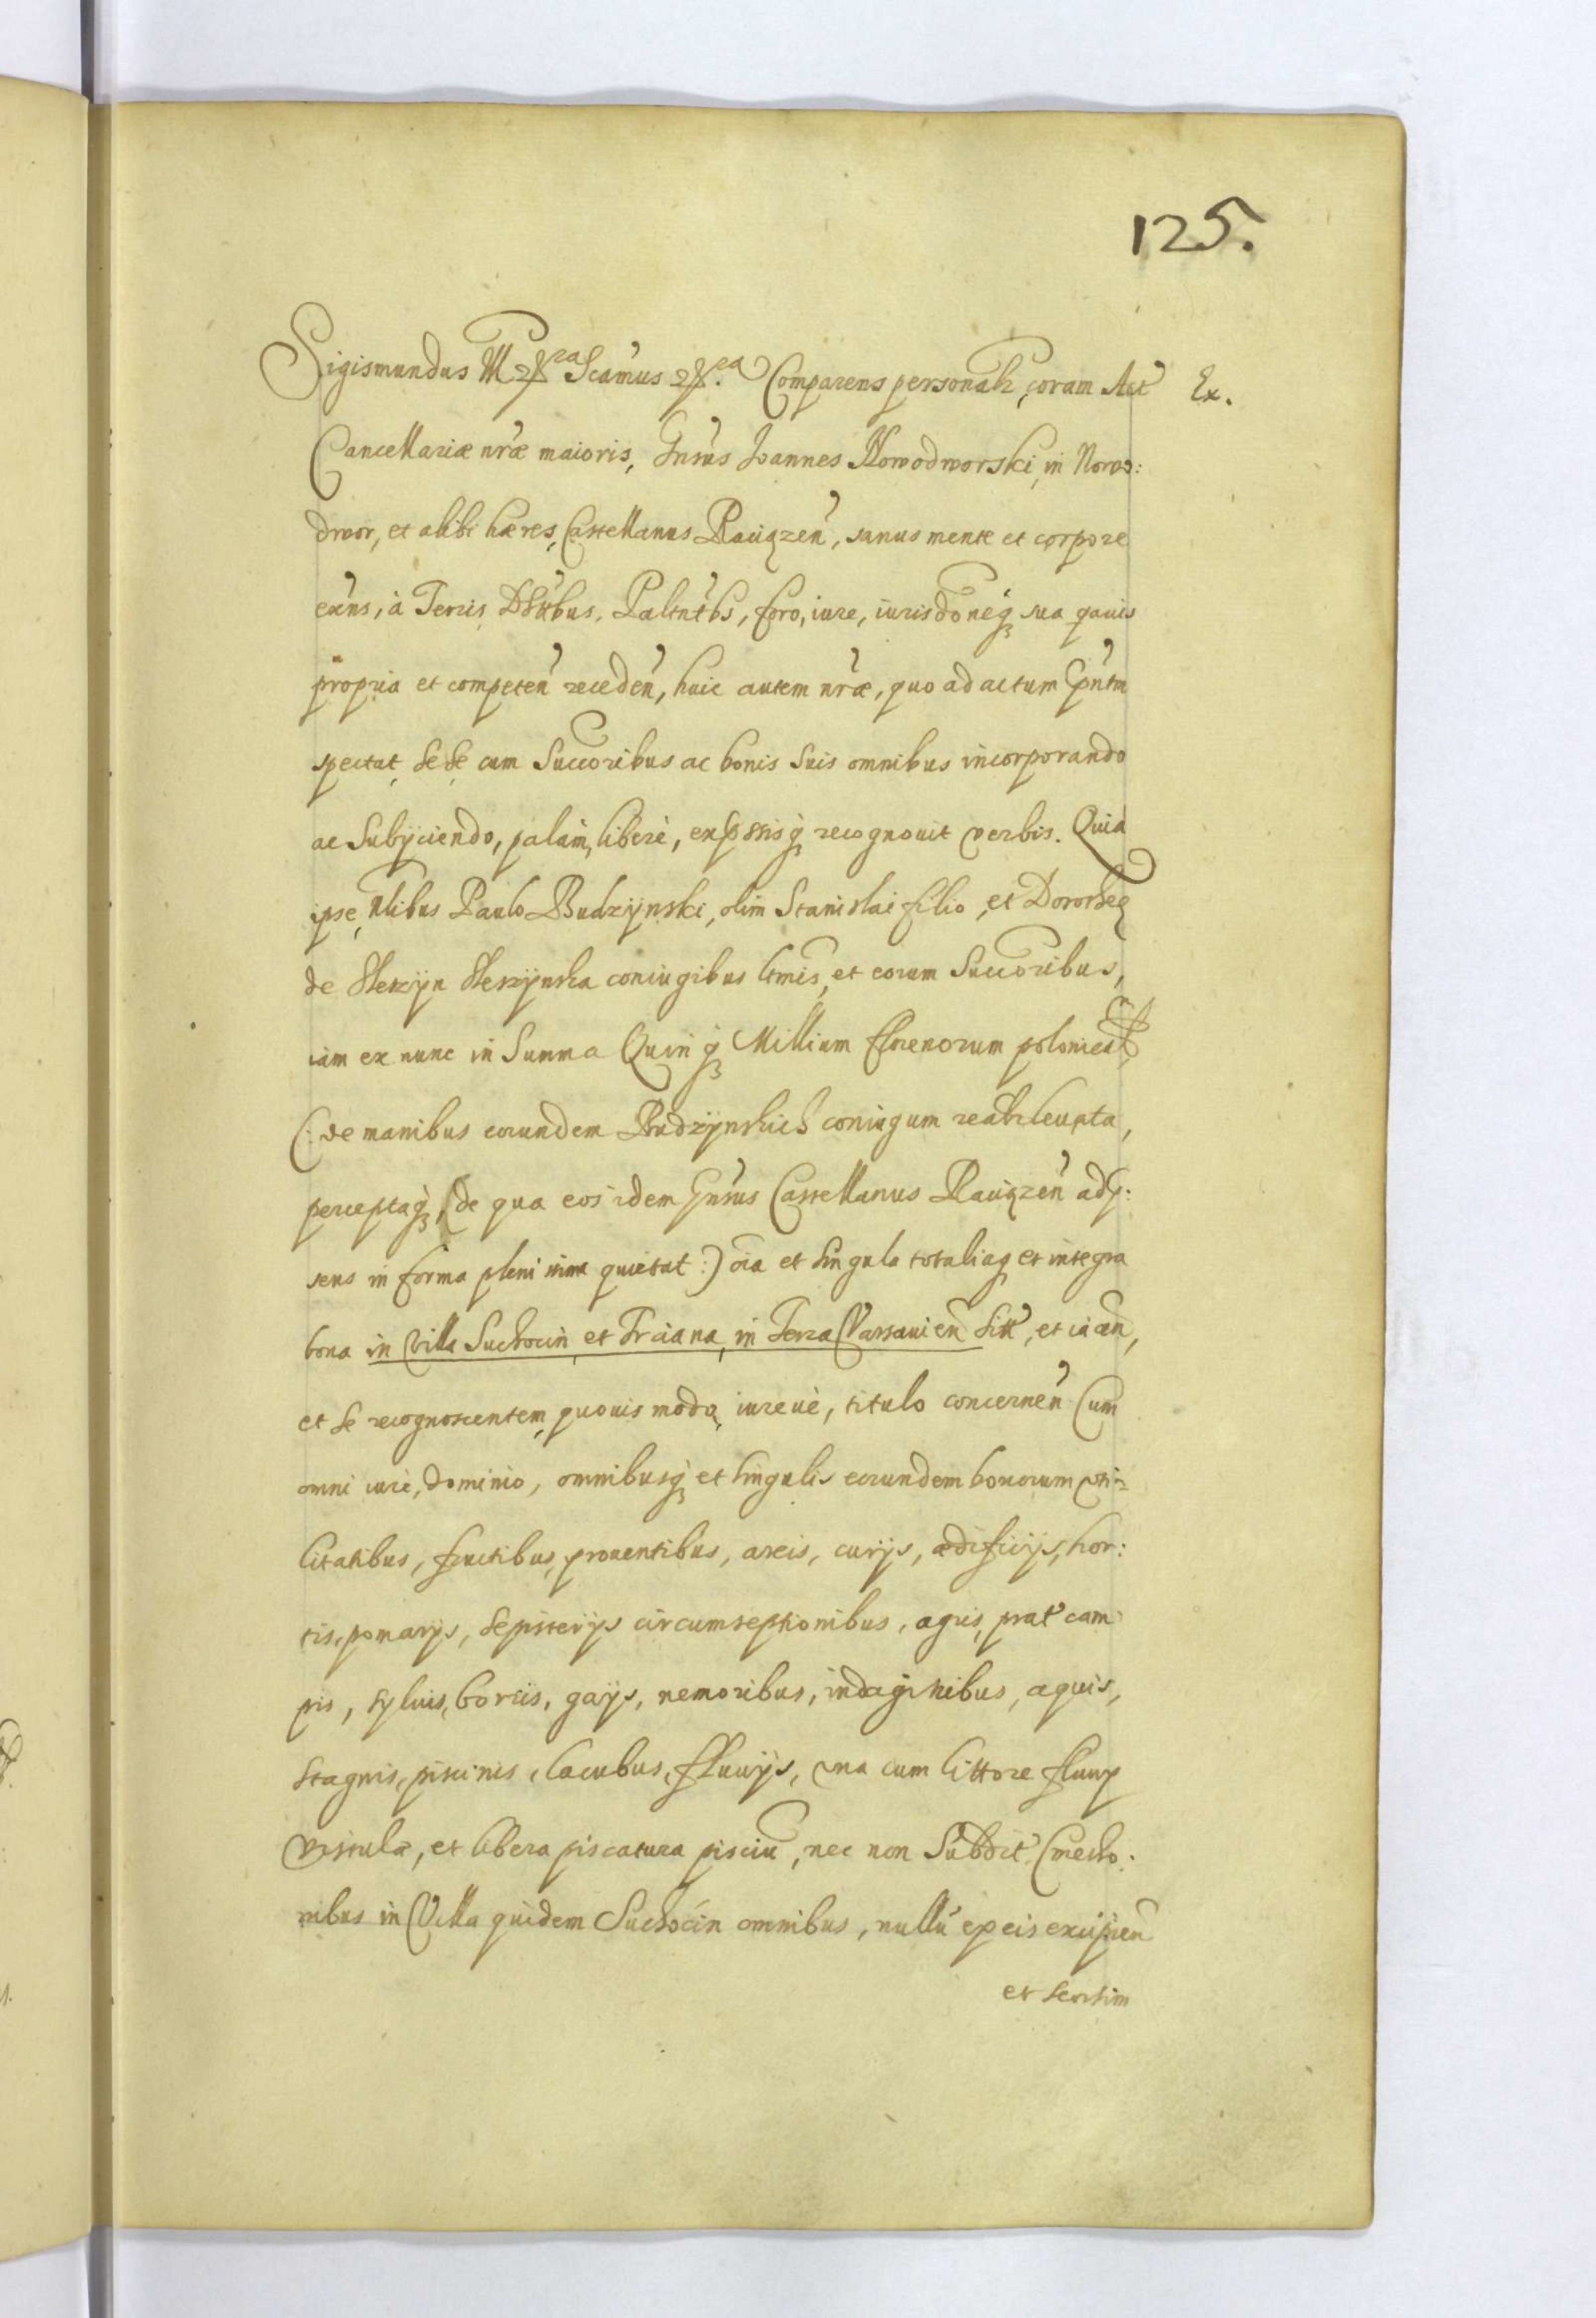 125.
Sigismundus III etc Scimus etc. Comparens personalr, coram Act Ex.
Cancellariæ nræ maioris, Gnsus Joannes Nowodworski, in Nowo:
dwor, et alibi hæres, Castellanus Rauązen, sanus mente et corpore
exns, à Terris, Dstrbus, Paltntbs, foro, iure, iurisdoneq sua qauis
propria et competen receden, huic autem nræ, quo ad actum pntm
spectat, sese cum Succoribus ac bonis suis omnibus incorporando
ac Subyciendo, palàm, liberè, expssisq recognouit verbis. Quia
ipse, Nlibus Paulo Budzÿnski, olim Stanislai filio, et Dorotheæ
de coniugibus ltmis, et eorum Succoribus,
iam ex nunc in Summa Quinq Millium florenorum polonical
(: de manibus eorundem Budzÿnskich coniugum realr leuata,
perceptaq, (de qua eosidem Gnsus Castellanus Rauązen adp:
sens in forma plenissima quietat :) oia et singula totaliaq et integra
bona in Villa Suchocin et Trciana, in Terra Varsauien sitt,
et se recognoscentem, quouis modo, iureuè, titulo concernen Cum
omni iure, dominio, omnibusq et singulis eorundem bonorum vti=
litatibus, fructibus, prouentibus, areis, curÿs, ædificÿs, hor:
tis, pomarÿs, sepisterÿs circumseptionibus, agris, prat cam
pis, syluis, borris, gaÿs, nemoribus, indaginibus, aquis,
stagnis, piscinis, lacubus, fluuÿs, vna cum littore fluuÿ
Vistulæ, et libera piscatura pisciu, nec non Subdit Cmetho:
nibus in Villa quidem Suchocin omnibus, nullu ex eis excipien
et seorsim